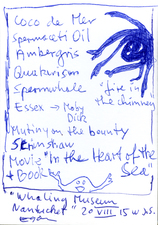 Coco de Mer
Spermaceti Oil
Ambergris
Quakerism
Spermwhale
"fire in the chimney"
Essex → Moby Dick
Mutiny on the bounty
Skrimshaw
Movie "In the Heart of the Sea"
+ Book
"Whaling Museum
Nantucket" 20 VIII 15 w NS.